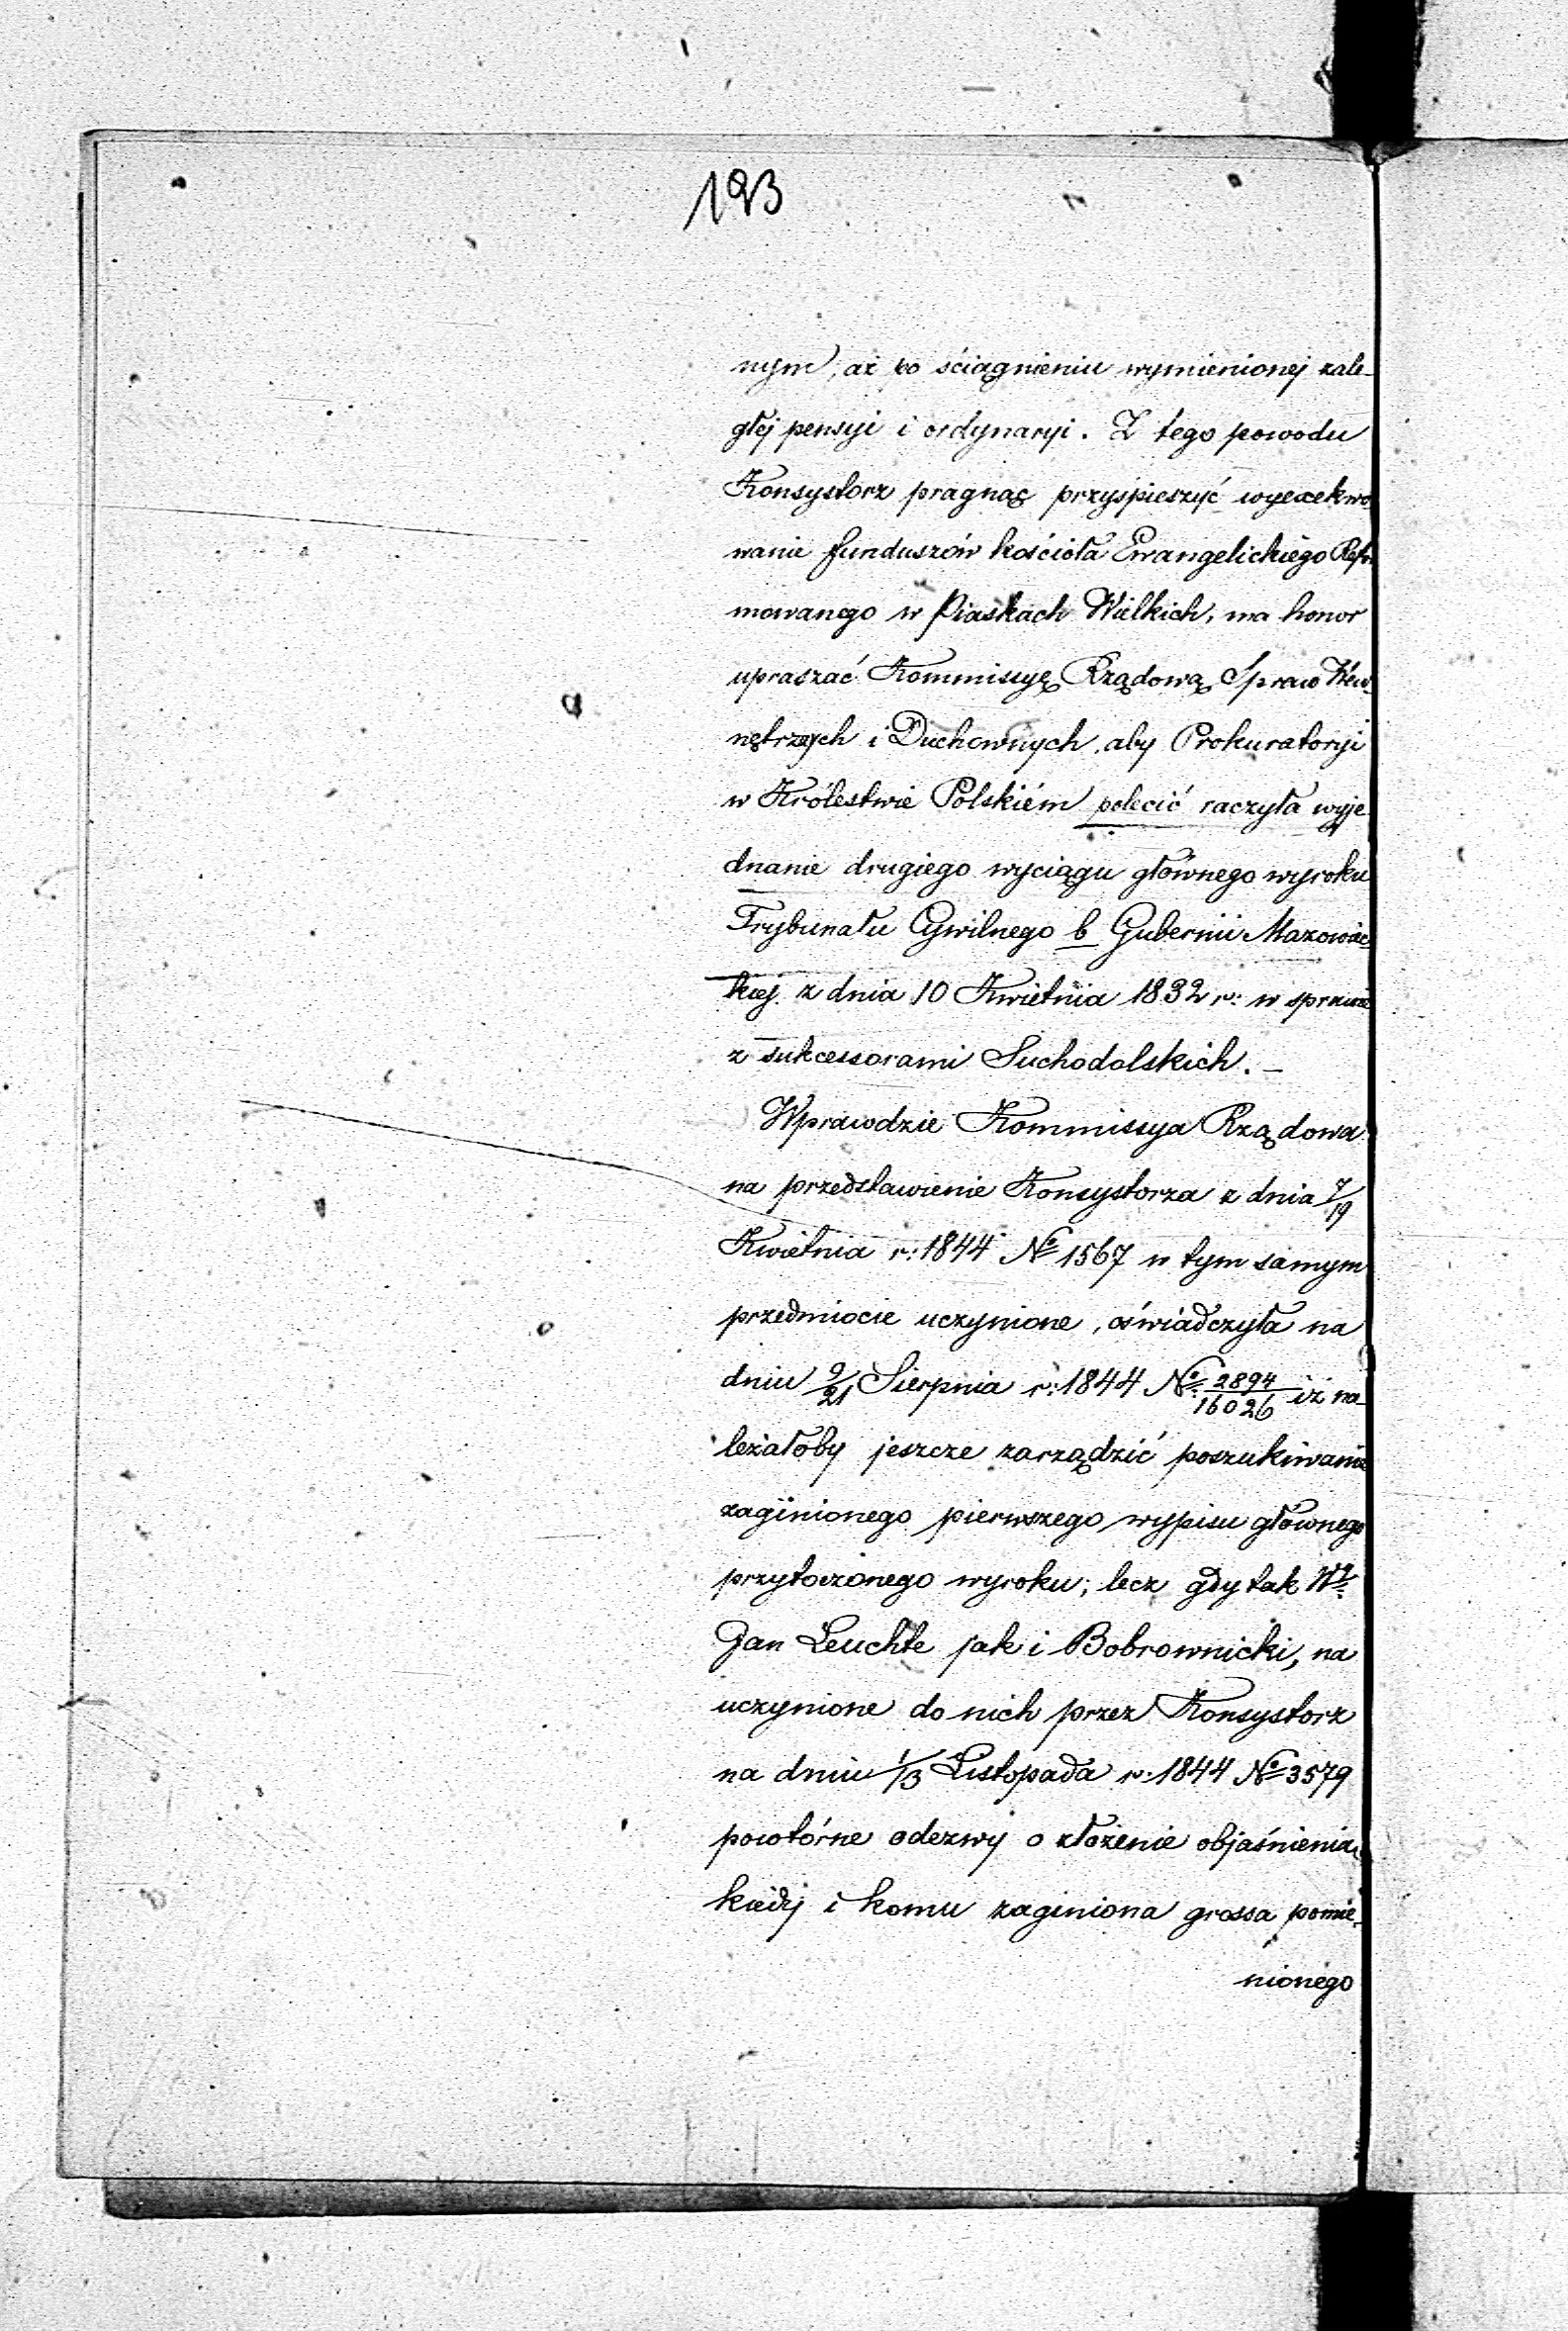 193
nym, aż po ściągnieniu wymienionej zale-
głej pensyi i ordynaryi. Z tego powodu
Konsystorz pragnąc przyśpieszyć wyexekwo
wanie funduszów kościoła Ewangelickiego Refor
mowanego w Piaskach Wielkich, ma honor
upraszać Kommissyę Rządową Spraw Wew
nętrznych i Duchownych, aby Prokuratoryi
w Królestwie Polskiém polecić raczyła wyje
dnanie drugiego wyciągu głównego wyroku
Trybunału Cywilnego b Gubernii Mazowiec
kiej z dnia 10 Kwietnia 1832 r: w sprawie
z sukcessorami Suchodolskich. –
Wprawdzie Kommissya Rządowa
na przedstawienie Konsystorza z dnia 7/19
Kwietnia r: 1844 No 1567 w tym samym
przedmiocie uczynione, oświadczyła na
dniu 9/21 Sierpnia r: 1844 No 2894/16026 iż na-
leżałoby jeszcze zarządzić poszukiwanie
zaginionego pierwszego wypisu głównego
przytoczonego wyroku; lecz gdy tak Wy
Jan Leuchte jak i Bobrownicki, na
uczynione do nich przez Konsystorz
na dniu 1/13 Listopada r: 1844 No 3579
powtórne odezwy o złożenie objaśnienia,
kiedy i komu zaginiona grossa pomie-
nionego